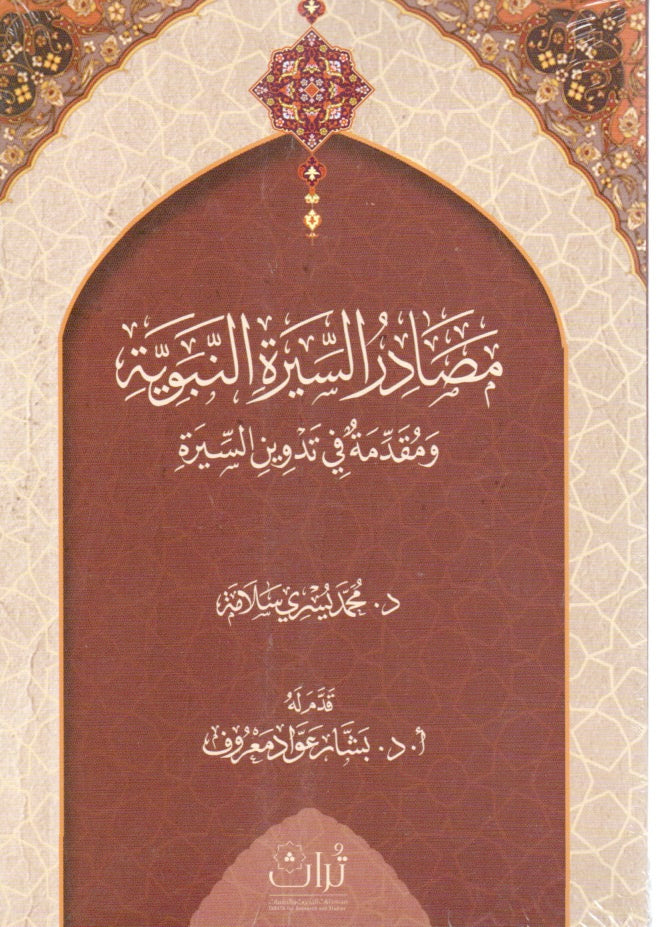 مَصَادِرُ السِّيرَةِ النَّبَوِيَّةِ
وَمُقَدِّمَةٌ فِي تَدْوِينِ السِّيرَةِ
د. مُحَمَّد يُسْرِي سَلَامَة
قَدَّمَ لَهُ
أ. د. بَشَّار عَوَّاد مَعْرُوف
تُراث